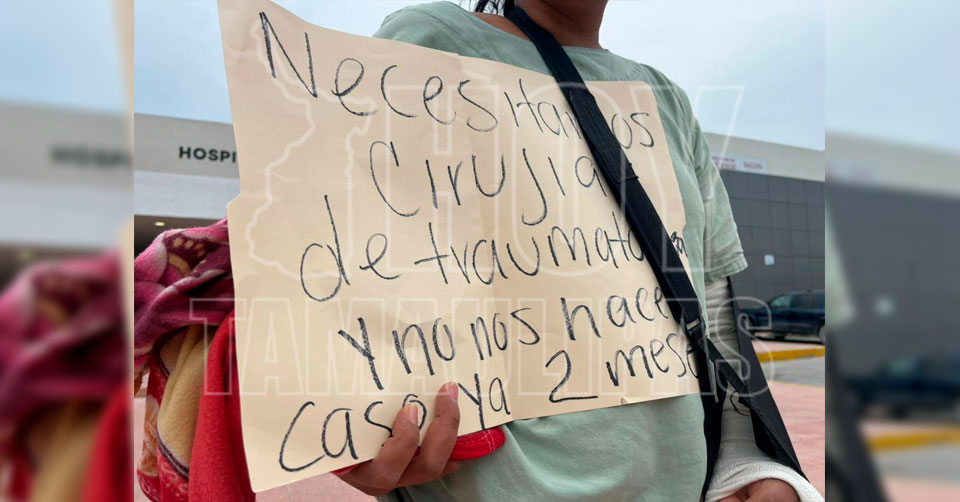 Necesitamos
Cirujias
de traumato
y no nos hacen
caso ya 2 meses
HOSPI
HOY
TAMAULIPAS